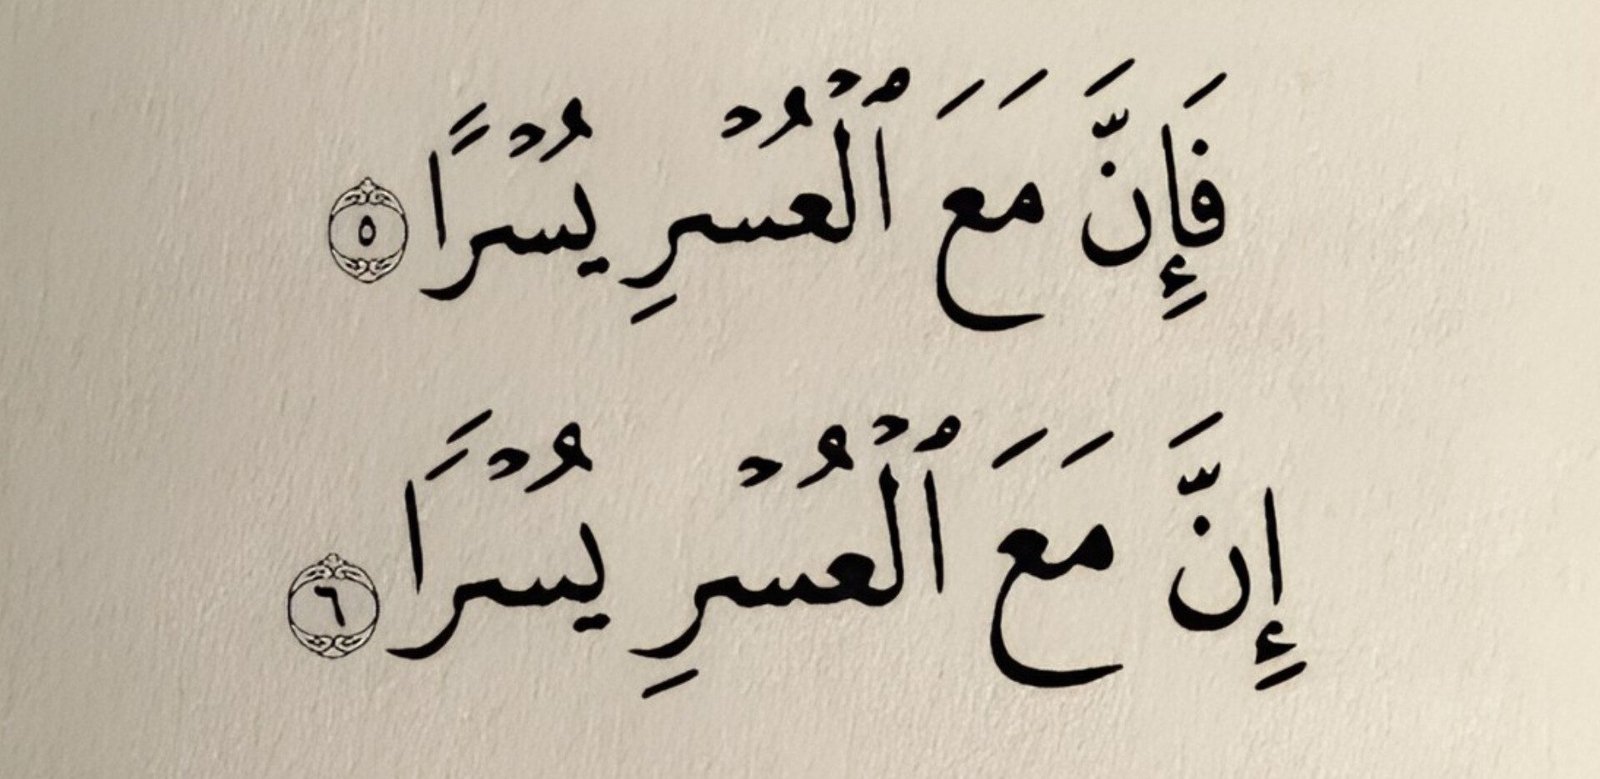 فَإِنَّ مَعَ ٱلْعُسْرِ يُسْرًا ٥
إِنَّ مَعَ ٱلْعُسْرِ يُسْرًا ٦